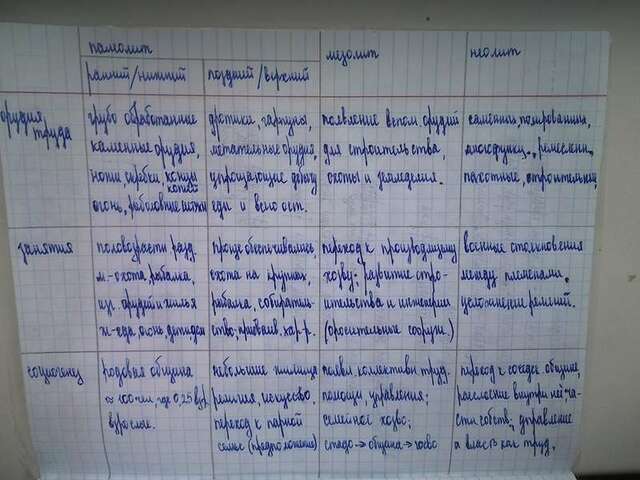 палеолит
мезолит
неолит
ранний/нижний
поздний/верхний
орудия труда
грубо обработанные
каменные орудия,
ножи, скребки, концы
копий
огонь, рыболовные
дротики, гарпуны,
метательные орудия,
упрощающие добычу
еды и всего ост.
появление вспом. орудий
для строительства,
охоты и земледелия.
каменные, полированные,
многофункц., ремеслен.,
пахотные, строительные
занятия
половозрастн. разд.
м-охота, рыбалка,
изг. орудий и жилья
ж-еда, огонь, дети, дом
проще обеспечивались,
охота на крупных,
рыбалка, собиратель-
ство; присваив. хар-р.
переход к производящему
хозву; развитие стро-
ительства и инженерии
(оросительные сооруж.)
военные столкновения
между племенами.
усложнение религий.
родовая община
≈ 100 чел., где 0,25
взрослые.
небольшие жилища
религия, искусство.
переход к парной
семье (предположение)
появл. коллективн. труд.
помощи, управления;
семейное хозво;
стадо → община →
переход к соседс. общине,
расслоение внутри неё
части собств; управление
и власть как труд.